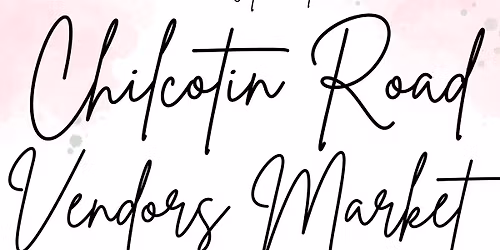 Chilcotin Road
Vendors Market